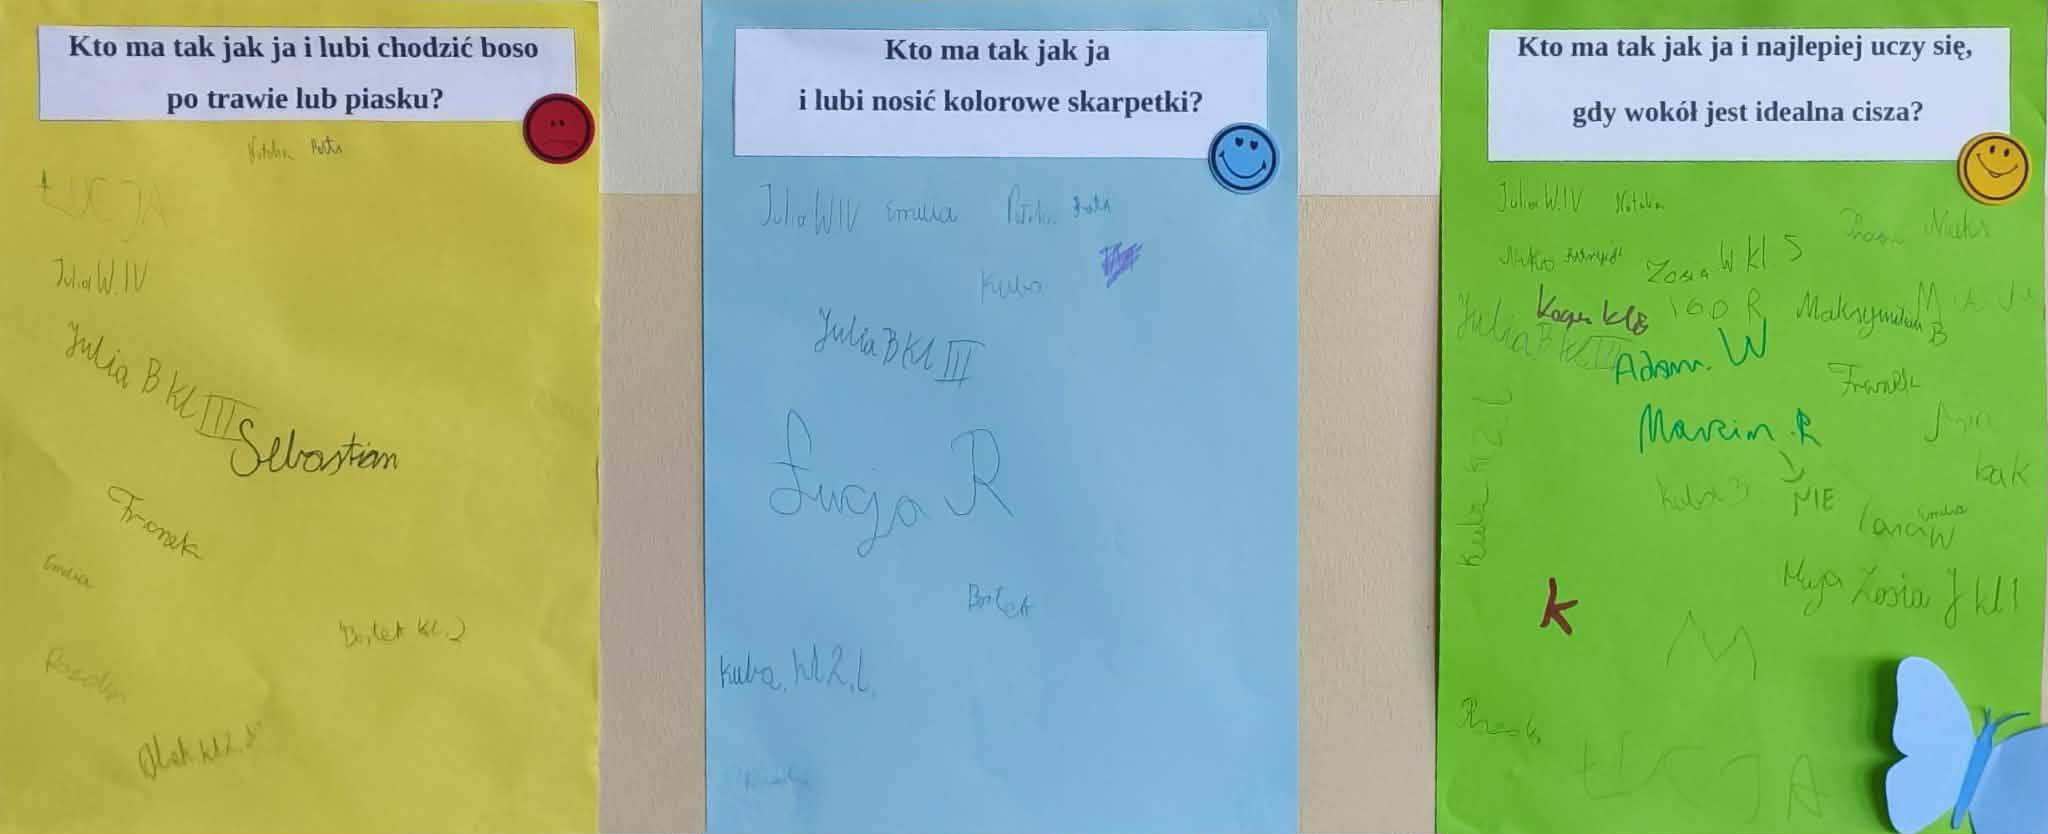 Kto ma tak jak ja i lubi chodzić boso
po trawie lub piasku?
Natalia
ŁUCJA
Julia W.IV
Julia B kl III
Sebastian
Franek
Emilia
Bartek kl.2
Kto ma tak jak ja
i lubi nosić kolorowe skarpetki?
Julia W IV Emilia
Kuba
Julia B kl III
Łucja R
Bartek
Kuba, kl 2, L
Kto ma tak jak ja i najlepiej uczy się,
gdy wokół jest idealna cisza?
Julia W.IV Natalia
Maks
Zosia W kl. 5
Julia B kl III
IGO R
Maksymilian B
Adam. W
Franek
Marcin. R
NIE
bak
Kuba
Emilia
Maja Zosia J kl 1
K
M
ŁUCJA